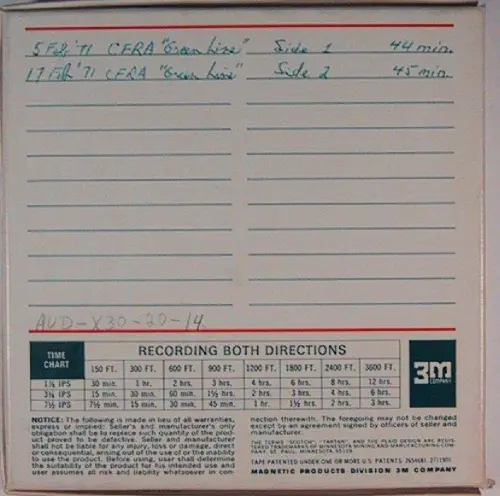 5 Feb '71 CFRA "Green Line" Side 1 44 min.
17 Feb '71 CFRA "Green Line" Side 2 45 min.
AUD-X30-20-14
TIME CHART
RECORDING BOTH DIRECTIONS
150 FT. 300 FT. 600 FT. 900 FT. 1200 FT. 1800 FT. 2400 FT. 3600 FT.
1⅞ IPS 30 min. 1 hr. 2 hrs. 3 hrs. 4 hrs. 6 hrs. 8 hrs. 12 hrs.
3¾ IPS 15 min. 30 min. 60 min. 1½ hrs. 2 hrs. 3 hrs. 4 hrs. 6 hrs.
7½ IPS 7½ min. 15 min. 30 min. 45 min. 1 hr. 1½ hrs. 2 hrs. 3 hrs.
3M
COMPANY
NOTICE: The following is made in lieu of all warranties,
express or implied: Seller's and manufacturer's only
obligation shall be to replace such quantity of the prod-
uct proved to be defective. Seller and manufacturer
shall not be liable for any injury, loss or damage, direct
or consequential, arising out of the use of or the inability
to use the product. Before using, user shall determine
the suitability of the product for his intended use and
user assumes all risk and liability whatsoever in con-
nection therewith. The foregoing may not be changed
except by an agreement signed by officers of seller and
manufacturer.
THE TERMS "SCOTCH", "TARTAN", AND THE PLAID DESIGN ARE REGIS-
TERED TRADEMARKS OF MINNESOTA MINING AND MANUFACTURING COM-
PANY, ST. PAUL, MINNESOTA, 55119.
TAPE PATENTED UNDER ONE OR MORE U.S. PATENTS 2654681, 2711901
MAGNETIC PRODUCTS DIVISION 3M COMPANY